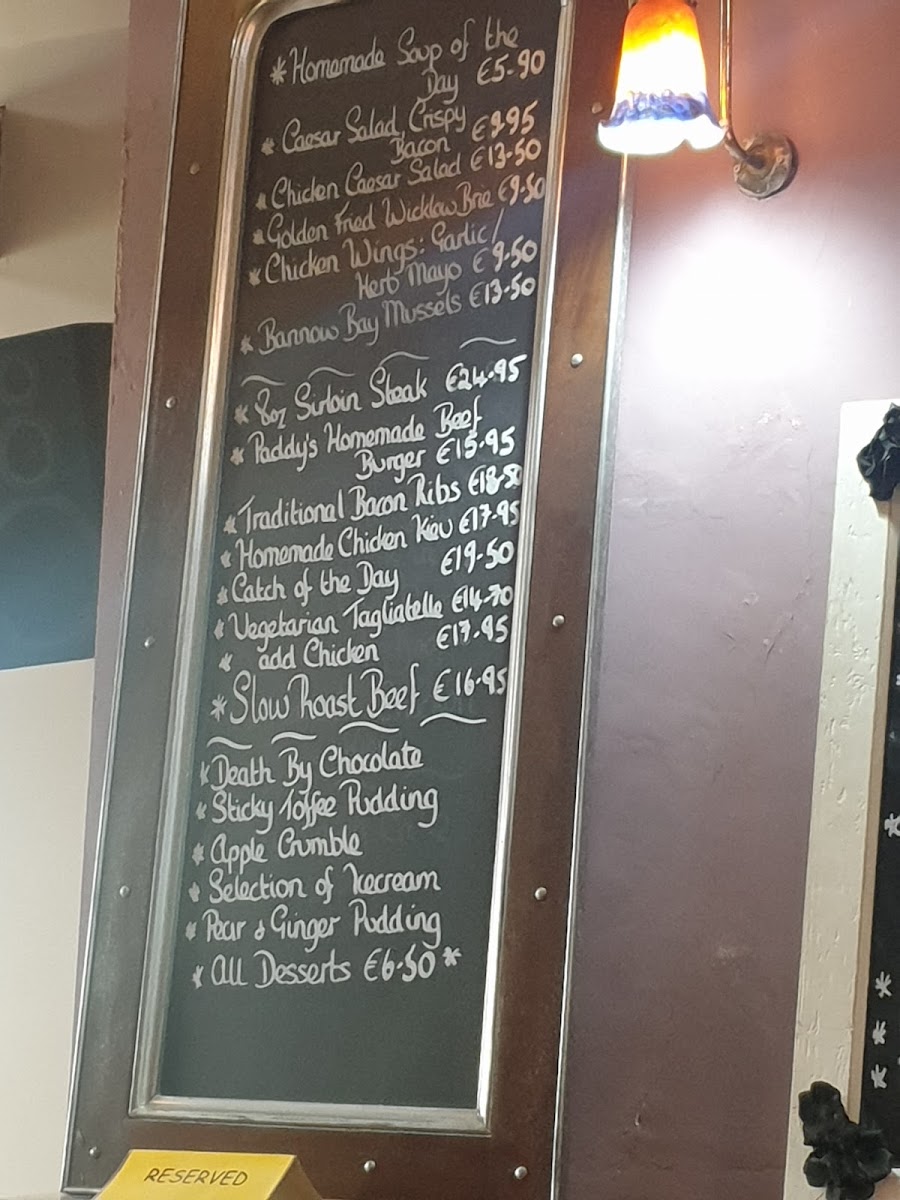 * Homemade Soup of the
Day €5-90
* Caesar Salad, Crispy
Bacon €9-95
* Chicken Caesar Salad €13-50
* Golden Fried Wicklow Brie €9-50
* Chicken Wings: Garlic/
Herb Mayo €9-50
* Bannow Bay Mussels €13-50
* 8oz Sirloin Steak €24-95
* Paddy's Homemade Beef
Burger €15-95
* Traditional Bacon Ribs €18-50
* Homemade Chicken Kiev €17-95
* Catch of the Day €19-50
* Vegetarian Tagliatelle €14-70
* add Chicken €17-95
* Slow Roast Beef €16-95
* Death By Chocolate
* Sticky Toffee Pudding
* Apple Crumble
* Selection of Icecream
* Pear & Ginger Pudding
* All Desserts €6-50 *
RESERVED